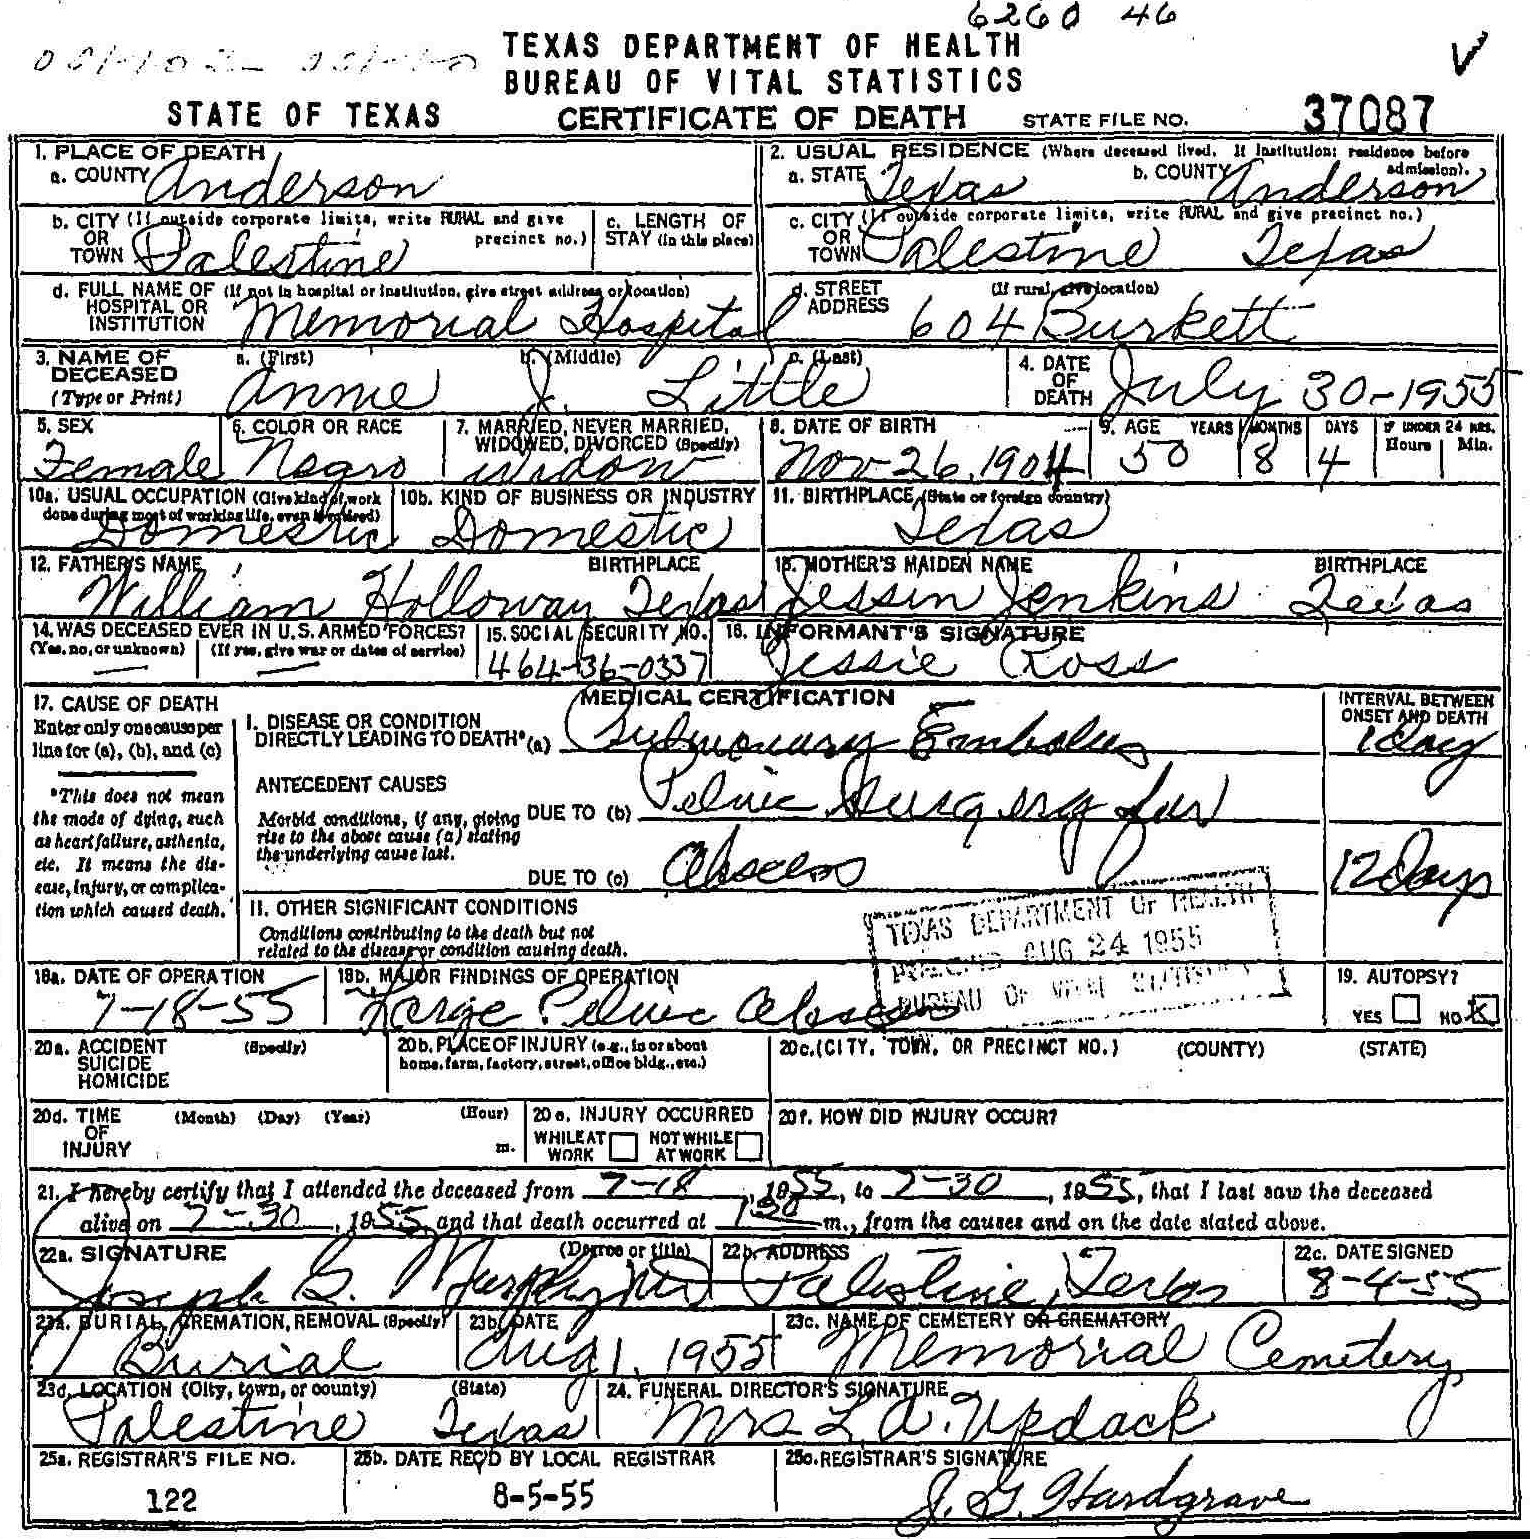 6260 46
TEXAS DEPARTMENT OF HEALTH
BUREAU OF VITAL STATISTICS
STATE OF TEXAS CERTIFICATE OF DEATH STATE FILE NO. 37087
1. PLACE OF DEATH
a. COUNTY Anderson
2. USUAL RESIDENCE (Where deceased lived. If institution: residence before admission).
a. STATE Texas b. COUNTY Anderson
b. CITY (If outside corporate limits, write RURAL and give precinct no.)
OR TOWN Palestine
c. LENGTH OF STAY (in this place)
c. CITY (If outside corporate limits, write RURAL and give precinct no.)
OR TOWN Palestine Texas
d. FULL NAME OF HOSPITAL OR INSTITUTION (If not in hospital or institution, give street address or location)
Memorial Hospital
d. STREET ADDRESS (If rural, give location)
604 Burkett
3. NAME OF DECEASED (Type or Print)
a. (First) b. (Middle) c. (Last)
Annie J. Little
4. DATE OF DEATH July 30-1955
5. SEX
Female
6. COLOR OR RACE
Negro
7. MARRIED, NEVER MARRIED, WIDOWED, DIVORCED (Specify)
Widow
8. DATE OF BIRTH
Nov 26, 1904
9. AGE YEARS MONTHS DAYS IF UNDER 24 HRS. Hours Min.
50 8 4
10a. USUAL OCCUPATION (Give kind of work done during most of working life, even if retired)
Domestic
10b. KIND OF BUSINESS OR INDUSTRY
Domestic
11. BIRTHPLACE (State or foreign country)
Texas
12. FATHER'S NAME BIRTHPLACE
William Holloway Texas
13. MOTHER'S MAIDEN NAME BIRTHPLACE
Jessin Jenkins Texas
14. WAS DECEASED EVER IN U.S. ARMED FORCES?
(Yes, no, or unknown) (If yes, give war or dates of service)
— —
15. SOCIAL SECURITY NO.
464-36-0337
16. INFORMANT'S SIGNATURE
Jessie Ross
17. CAUSE OF DEATH
Enter only one cause per line for (a), (b), and (c)
*This does not mean the mode of dying, such as heart failure, asthenia, etc. It means the disease, injury, or complication which caused death.
MEDICAL CERTIFICATION
INTERVAL BETWEEN ONSET AND DEATH
I. DISEASE OR CONDITION DIRECTLY LEADING TO DEATH* (a) Pulmonary Embolus 1 Day
ANTECEDENT CAUSES
Morbid conditions, if any, giving rise to the above cause (a) stating the underlying cause last.
DUE TO (b) Pelvic Surgery for
DUE TO (c) Abscess 12 Days
II. OTHER SIGNIFICANT CONDITIONS
Conditions contributing to the death but not related to the disease or condition causing death.
TEXAS DEPARTMENT OF HEALTH
AUG 24 1955
BUREAU OF VITAL STATISTICS
18a. DATE OF OPERATION
7-18-55
18b. MAJOR FINDINGS OF OPERATION
Large Pelvic Abscess
19. AUTOPSY?
YES NO X
20a. ACCIDENT SUICIDE HOMICIDE (Specify)
20b. PLACE OF INJURY (e.g., in or about home, farm, factory, street, office bldg., etc.)
20c. (CITY, TOWN, OR PRECINCT NO.) (COUNTY) (STATE)
20d. TIME OF INJURY (Month) (Day) (Year) (Hour) m.
20e. INJURY OCCURRED
WHILE AT WORK NOT WHILE AT WORK
20f. HOW DID INJURY OCCUR?
21. I hereby certify that I attended the deceased from 7-18, 1955, to 7-30, 1955, that I last saw the deceased
alive on 7-30, 1955, and that death occurred at 1 30 m., from the causes and on the date stated above.
22a. SIGNATURE (Degree or title)
Joseph G. Murphy MD
22b. ADDRESS
Palestine, Texas
22c. DATE SIGNED
8-4-55
23a. BURIAL, CREMATION, REMOVAL (Specify)
Burial
23b. DATE
Aug 1, 1955
23c. NAME OF CEMETERY OR CREMATORY
Memorial Cemetery
23d. LOCATION (City, town, or county) (State)
Palestine Texas
24. FUNERAL DIRECTOR'S SIGNATURE
Mrs L. A. Updack
25a. REGISTRAR'S FILE NO.
122
25b. DATE REC'D BY LOCAL REGISTRAR
8-5-55
25c. REGISTRAR'S SIGNATURE
J. G. Hardgrave